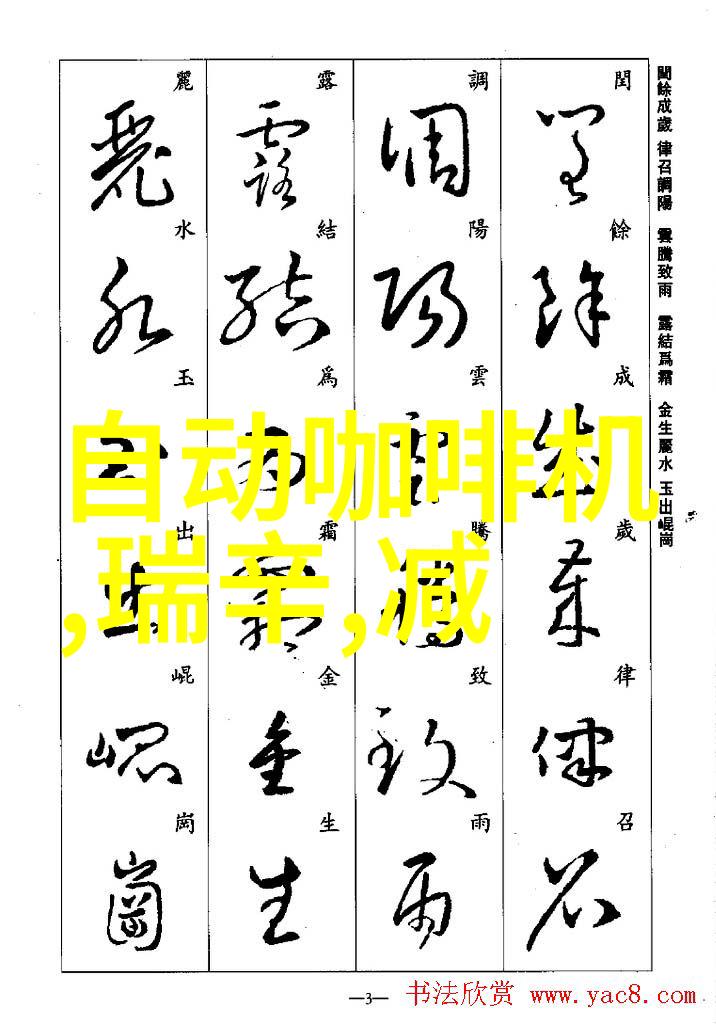 閏餘成歲 律召調陽 雲騰致雨 露結爲霜 金生麗水 玉出崐崗
閏餘成歲律召
調陽雲騰致雨
露結爲霜金生
麗水玉出崐崗
自动咖啡机
,瑞辛,减
—3—
书法欣赏 www.yac8.com